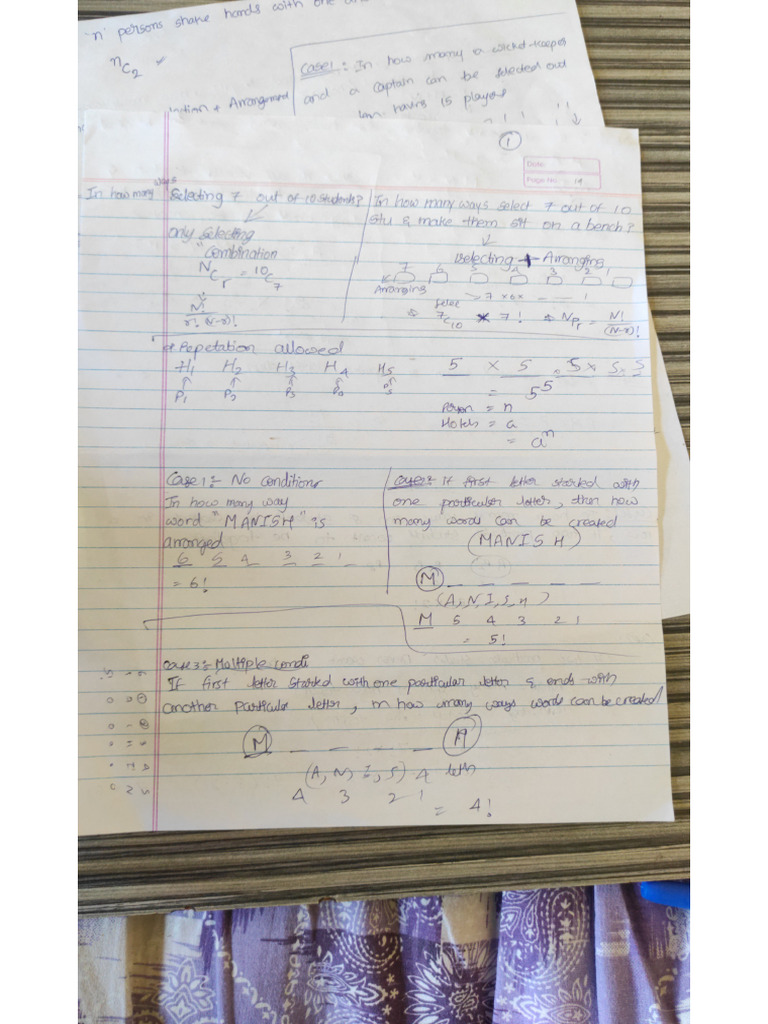 'n' persons shake hands with one
nC2
Case 1: In how many a wicket-keeper
and a captain can be selected out
having 15 players
+ Arrangement
1
Date
Page No. 19
In how many ways Selecting 7 out of 10 students?
only selecting
"Combination
NCr = 10C7
N!
r! (N-r)!
In how many ways select 7 out of 10
stu & make them sit on a bench?
Selecting + Arranging
7 6 5 4 3 2 1
Arranging
7 x 6 x - - - 1
7C10 * 7! NPr = N!
(N-r)!
Repetation allowed
H1 H2 H3 H4 H5
P1 P2 P3 P4 P5
5 x 5 x 5 x 5 x 5
= 5^5
Person = n
Hotels = a
= a^n
Case 1:- No conditions
In how many way
word "MANISH" is
arranged
6 5 4 3 2 1
= 6!
Case 2: If first letter started with
one particular letter, then how
many words can be created
(MANISH)
M _ _ _ _ _
(A, N, I, S, H)
M 5 4 3 2 1
= 5!
Case 3:- Multiple condi
If first letter started with one particular letter & ends with
another particular letter, in how many ways words can be created
M _ _ _ _ H
(A, N, I, S) 4
4 3 2 1
= 4!